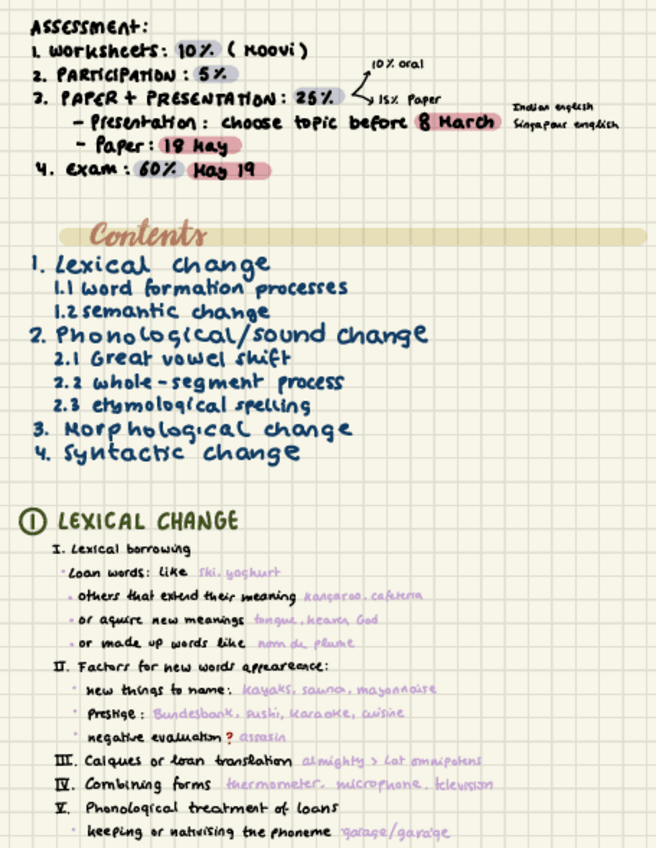 ASSESSMENT:
1. Worksheets: 10% (Moovi)
2. PARTICIPATION: 5%
3. PAPER + PRESENTATION: 25%
10% oral
15% Paper
- Presentation: choose topic before 8 March
Indian english
Singapour english
- Paper: 18 May
4. Exam: 60% May 19
Contents
1. Lexical change
1.1 word formation processes
1.2 semantic change
2. Phonological/sound change
2.1 Great vowel shift
2.2 whole-segment process
2.3 etymological spelling
3. Morphological change
4. Syntactic change
1 LEXICAL CHANGE
I. Lexical borrowing
• Loan words: like ski, yoghurt
• others that extend their meaning kangaroo, cafeteria
• or aquire new meanings tongue, heaven, God
• or made up words like nom de plume
II. Factors for new words appeareance:
• new things to name: kayaks, sauna, mayonnaise
• Prestige: Bundesbank, sushi, karaoke, cuisine
• negative evaluation? assasin
III. Calques or loan translation almighty > Lat omnipotens
IV. Combining forms thermometer, microphone, television
V. Phonological treatment of loans
• keeping or nativising the phoneme garage/gara'ge